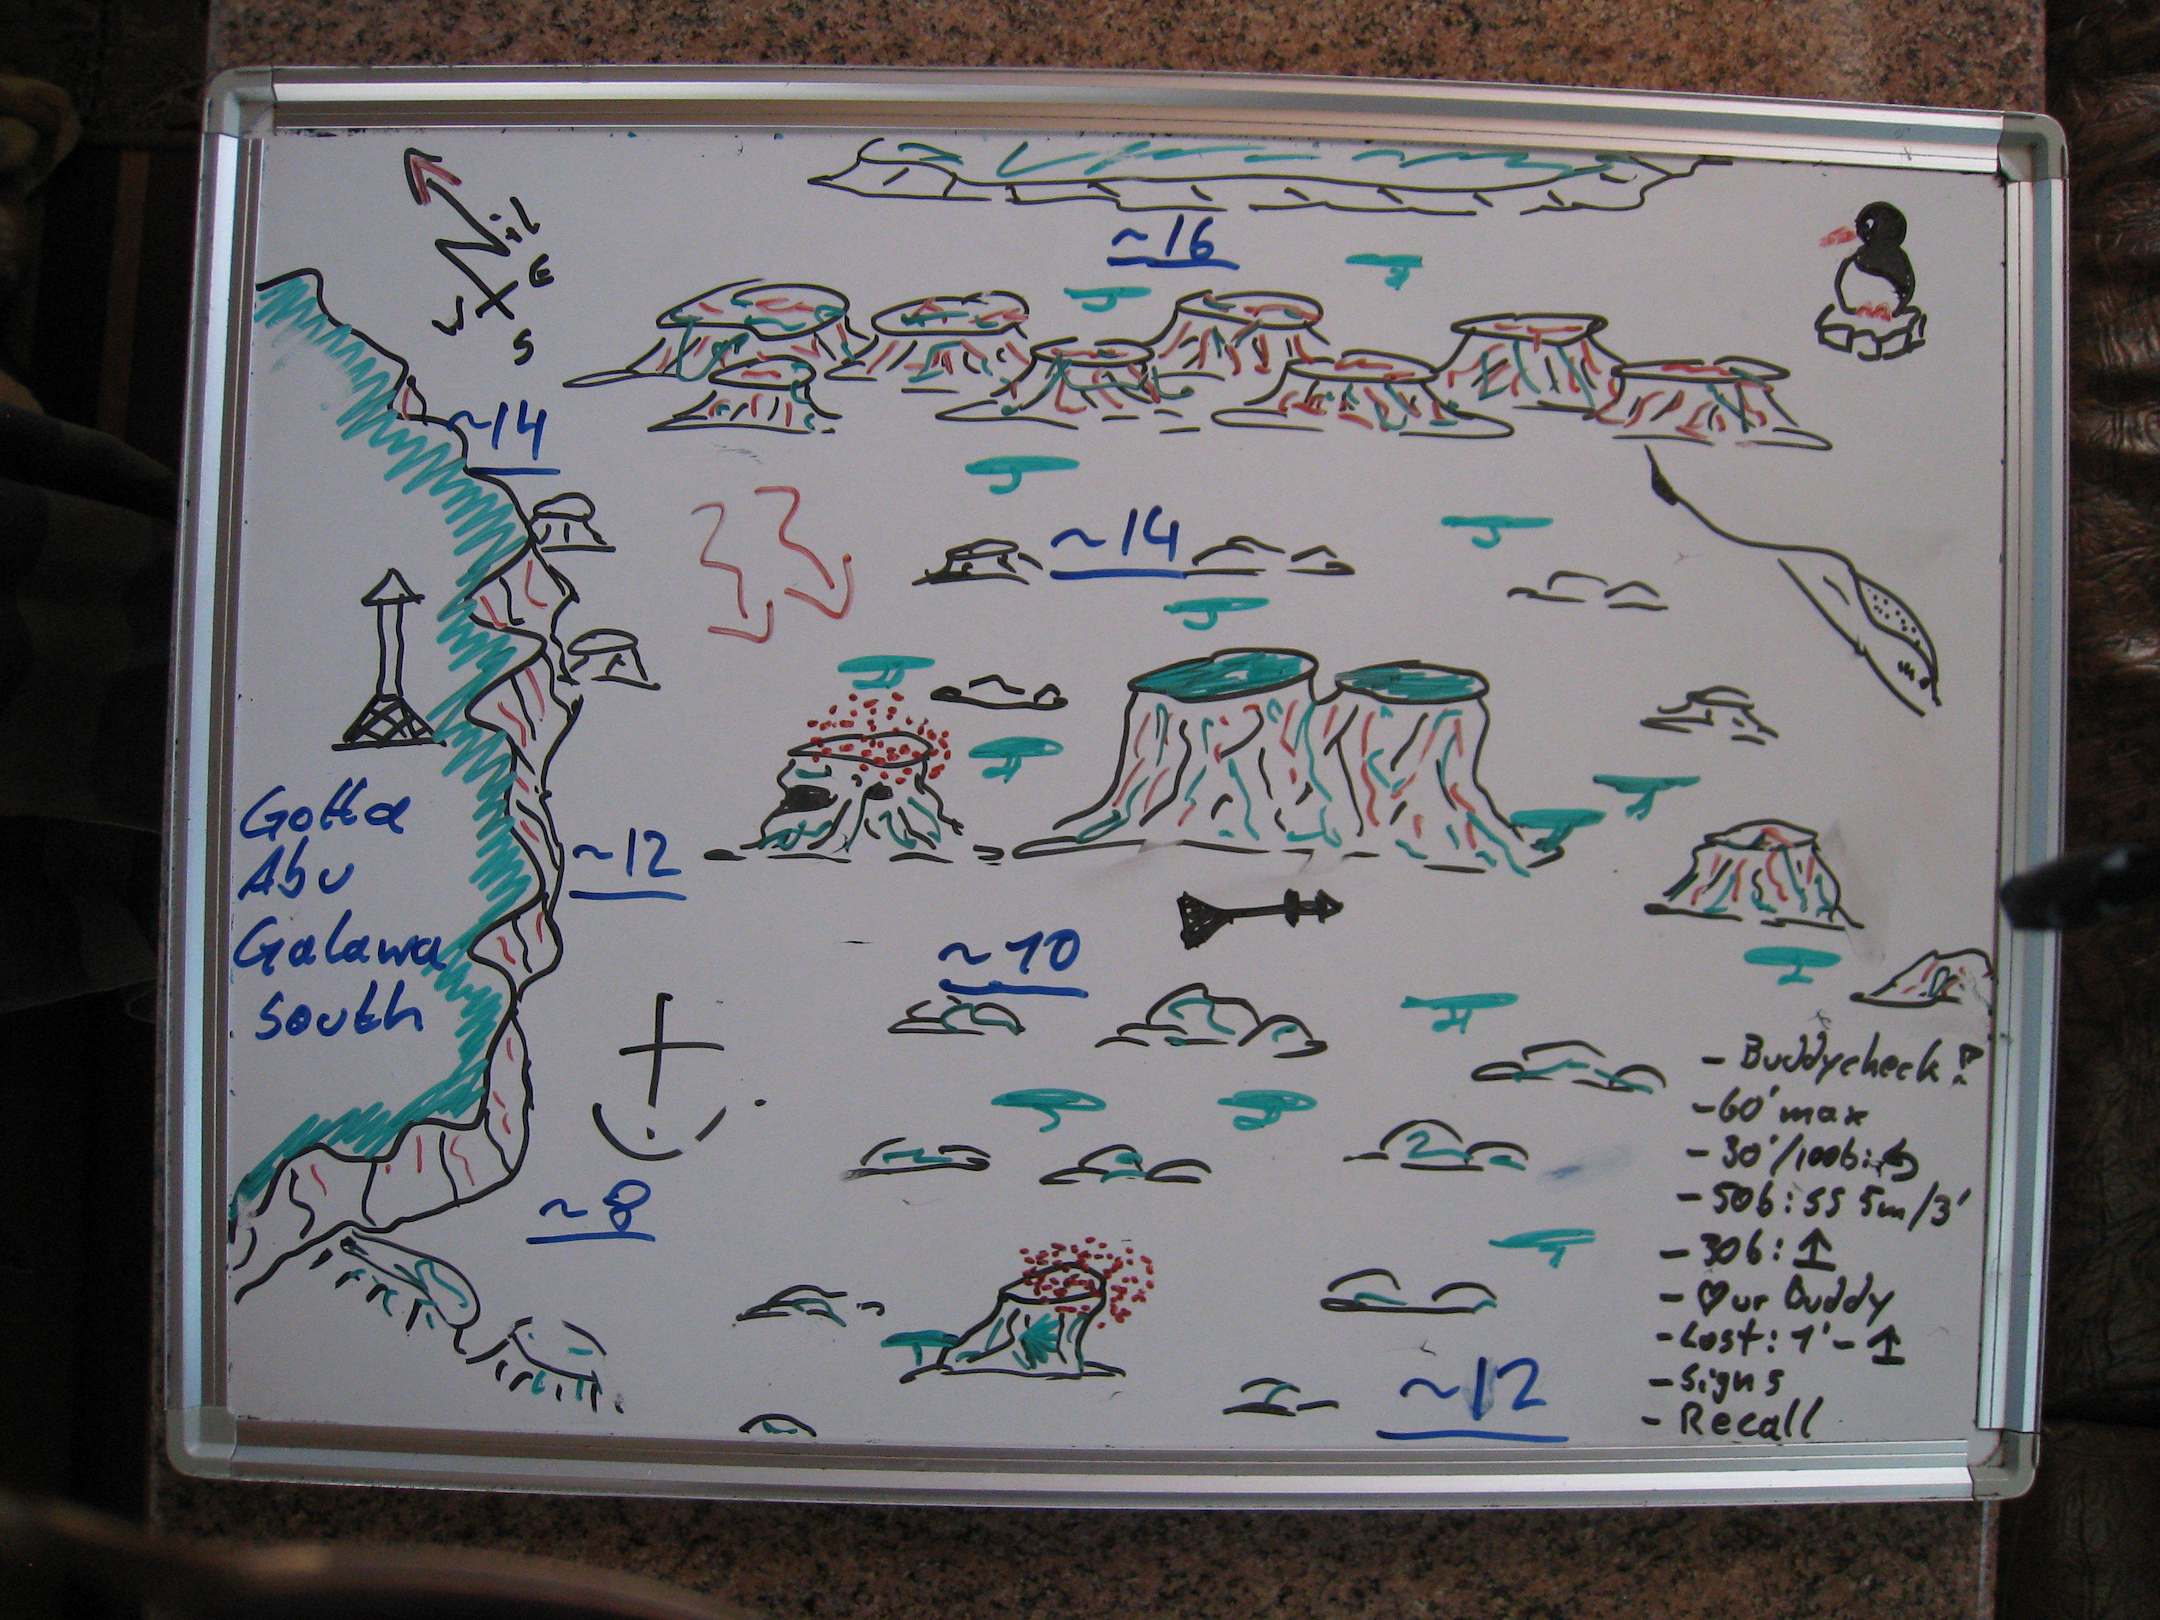 Nil
E
W
S
~16
~14
~14
Gotta
Abu
Galawa
South
~12
~10
~8
~12
- Buddycheck!
- 60' max
- 30'/100b:
- 50b: SS 5m/3'
- 30b: ↑
- ♡ ur Buddy
- Lost: 1' - ↑
- Signs
- Recall